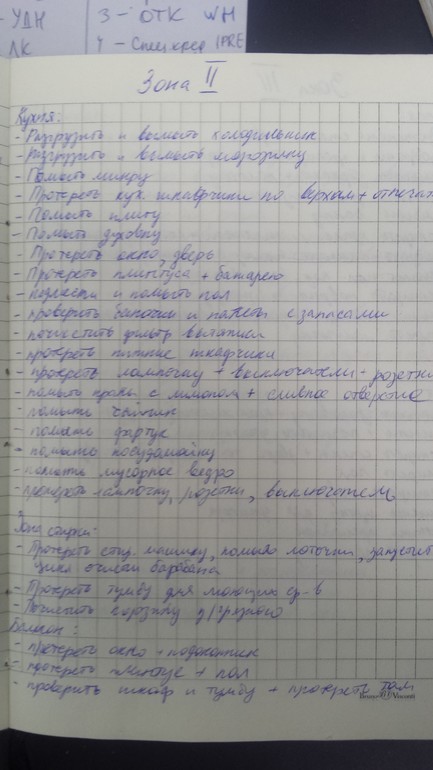 - УДН 3 - ОТК WH
ЛК 4 - Спецкред (PRE
Зона II
Кухня:
- Разгрузить и вымыть холодильник
- Разгрузить и вымыть морозилку
- Помыть микру
- Протереть кух. шкафчики по верхам + отпечат
- Помыть плиту
- Помыть духовку
- Протереть окно, дверь
- Протереть плинтуса + батарею
- подмести и помыть пол
- проверить баночки и пакеты с запасами
- почистить фильтр вытяжки
- протереть нижние шкафчики
- протереть лампочку + выключатели - розетки
- помыть кран с лимоном + сливное отверстие
- помыть чайник
- помыть фартук
- помыть посудомойку
- помыть мусорное ведро
- протереть лампочку, розетки, выключатель
Зона стирки:
- Протереть стир. машинку, помыть лоточки, запустит
цикл очистки барабана
- Протереть тумбу для моющих ср-в
- Почистить корзину д/грязного
Балкон:
- протереть окно + подоконник
- протереть плинтус + пол
- проверить шкаф и тумбу + протереть там
Bruno Visconti